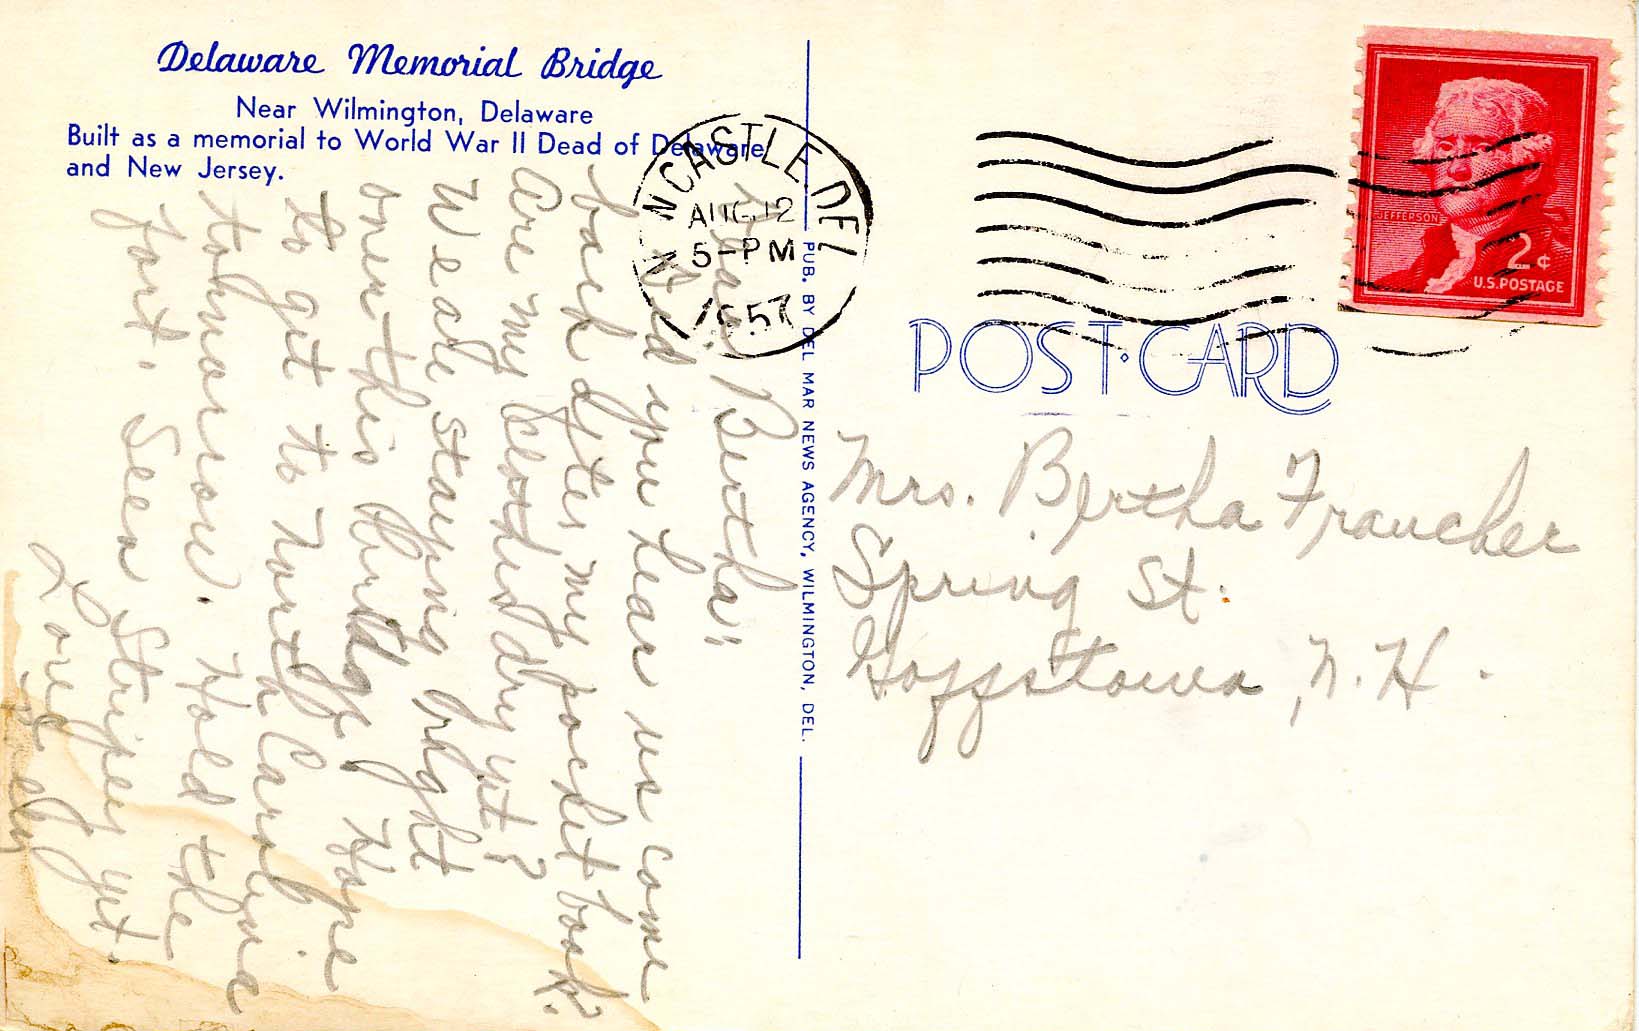 Delaware Memorial Bridge
Near Wilmington, Delaware
Built as a memorial to World War II Dead of Delaware
and New Jersey.
Dear Bertha"
Did you hear us come
back after my pocket book.
Are my clothes dry yet?
We are staying right
over this bridge, Hope
to get to North Carolina
tohmorrow. Hold the
fort. Seen Stripey yet.
Love
PUB. BY DEL MAR NEWS AGENCY, WILMINGTON, DEL.
N CASTLE. DEL
AUG 12
5-PM
1957
JEFFERSON
2¢
U.S. POSTAGE
POST CARD
Mrs. Bertha Fraucher
Spring St.
Goffstown, N. H.